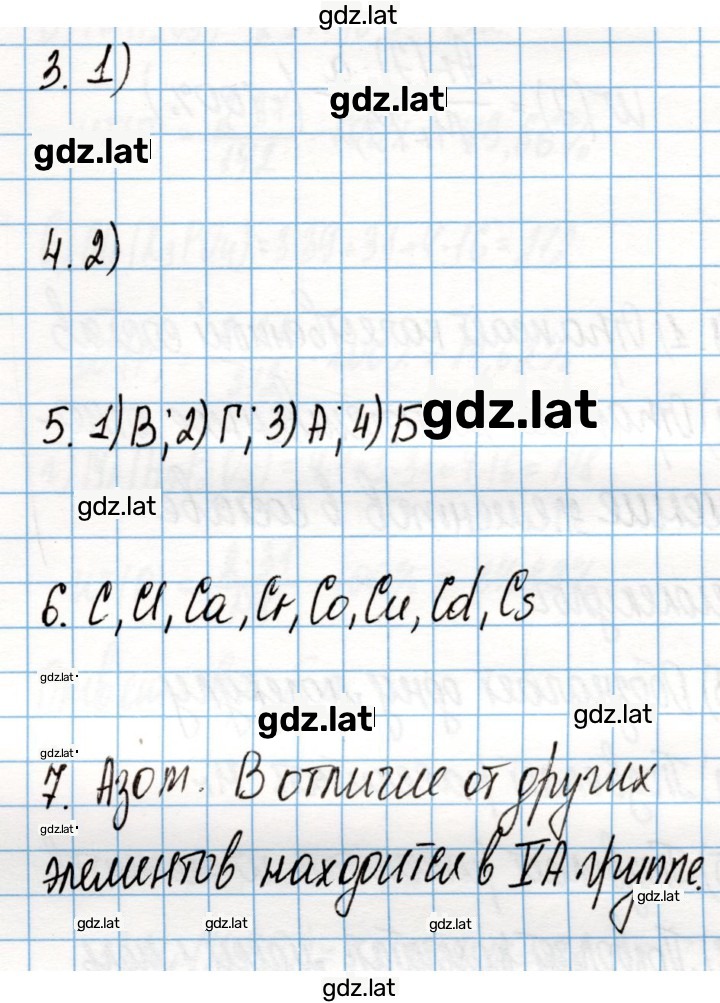 gdz.lat
3. 1)
gdz.lat
gdz.lat
4. 2)
5. 1) В; 2) Г; 3) А; 4) Б
gdz.lat
gdz.lat
6. C, Cl, Ca, Cr, Co, Cu, Cd, Cs
gdz.lat
gdz.lat
gdz.lat
gdz.lat
7. Азот. В отличие от других
gdz.lat
элементов находится в VA группе.
gdz.lat
gdz.lat
gdz.lat
gdz.lat
gdz.lat